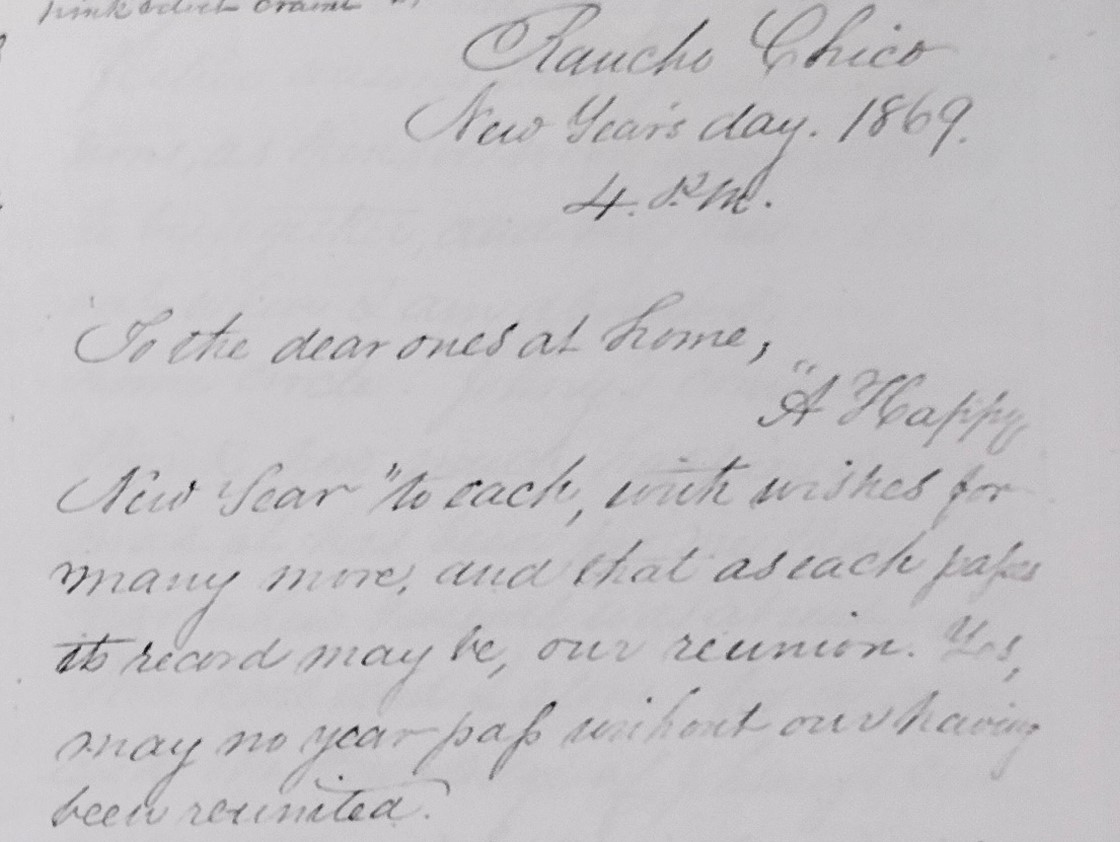 Rancho Chico
New Year's day. 1869.
4. P.M.
To the dear ones at home,
"A Happy
New Year" to each, with wishes for
many more, and that as each passes
its record may be, our reunion. Yes,
may no year pass without our having
been reunited.